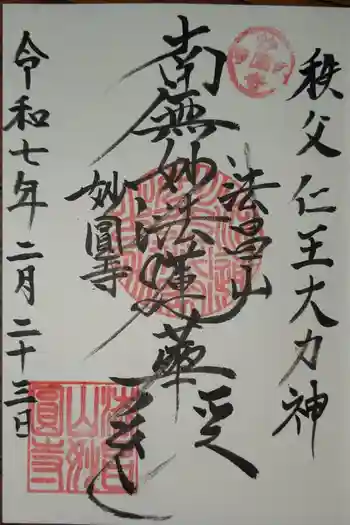 秩父仁王大力神
南無妙法蓮華経
妙圓寺
令和七年二月二十三日